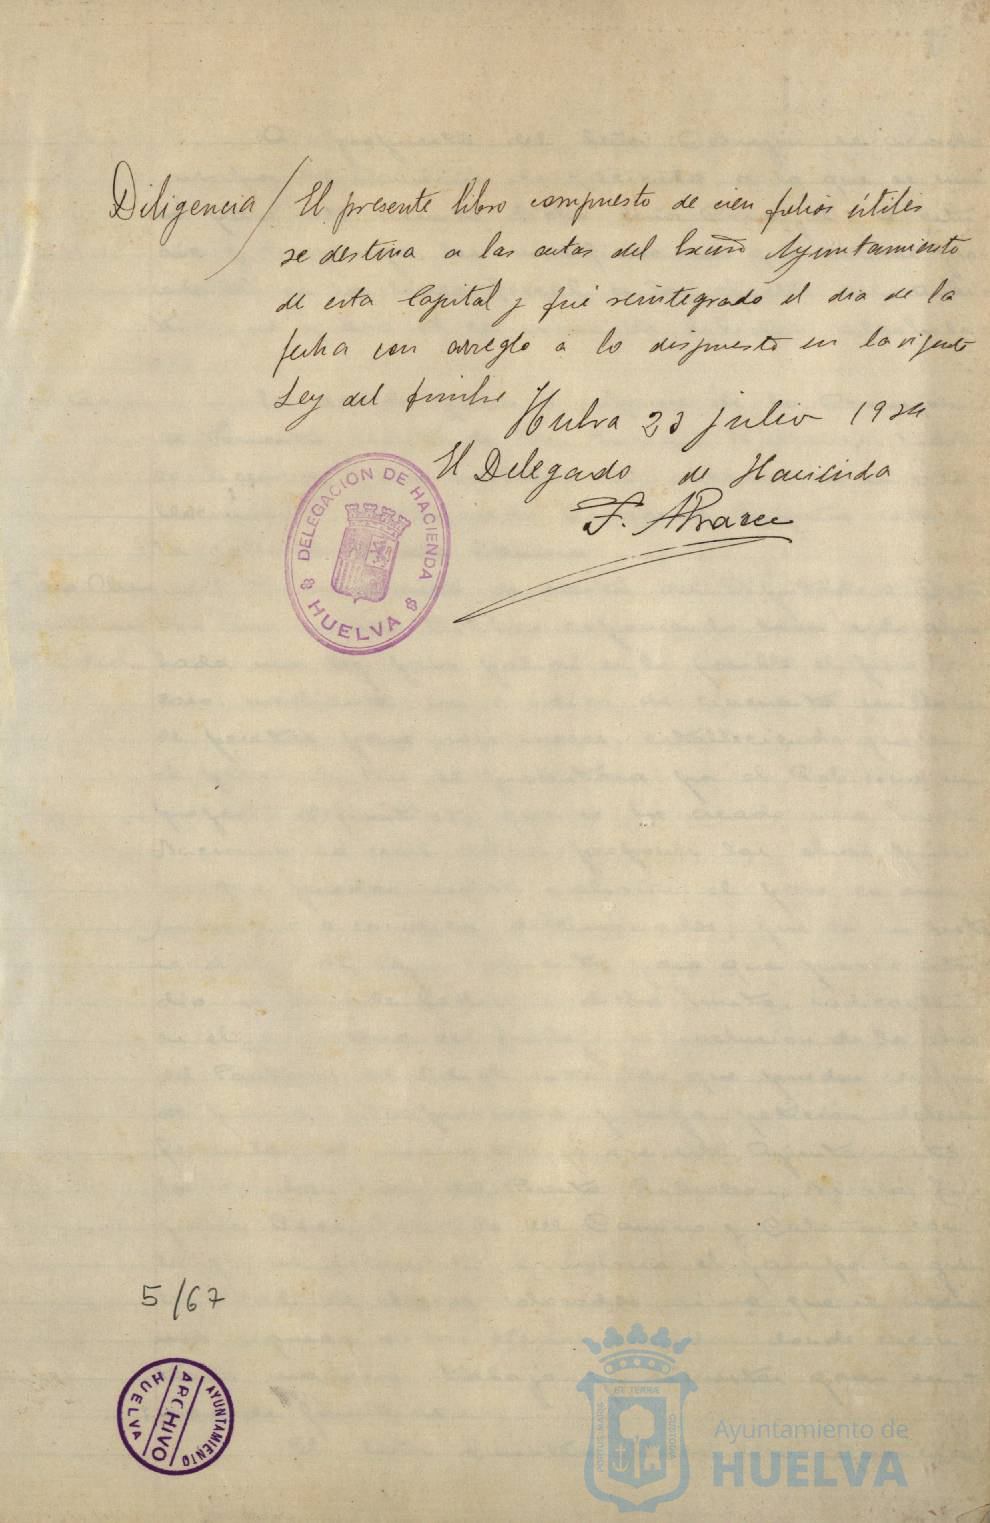 Diligencia / El presente libro compuesto de cien folios útiles
se destina a las actas del Excmo Ayuntamiento
de esta Capital y fué reintegrado el dia de la
fecha con arreglo a lo dispuesto en la vigente
Ley del timbre
Huelva 23 julio 1924
El Delegado de Hacienda
F. Alvarez
DELEGACION DE HACIENDA
HUELVA
5/67
AYUNTAMIENTO
ARCHIVO
HUELVA
PORTUS MARIS
ET TERRAE
CUSTODIA
Ayuntamiento de
HUELVA